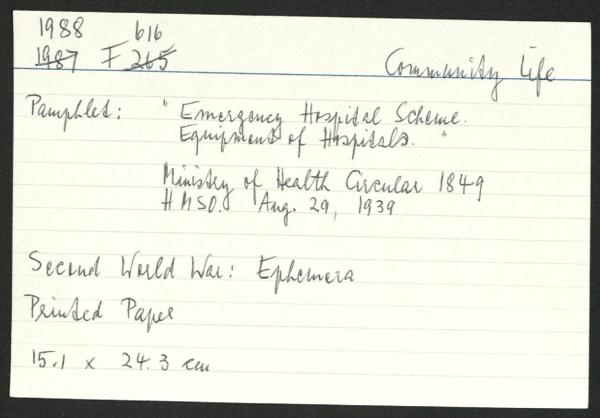 1988 616
1987 F 265
Community Life
Pamphlet: " Emergency Hospital Scheme.
Equipment of Hospitals. "
Ministry of Health Circular 1849
HMSO. Aug. 29, 1939
Second World War: Ephemera
Printed Paper
15.1 x 24.3 cm